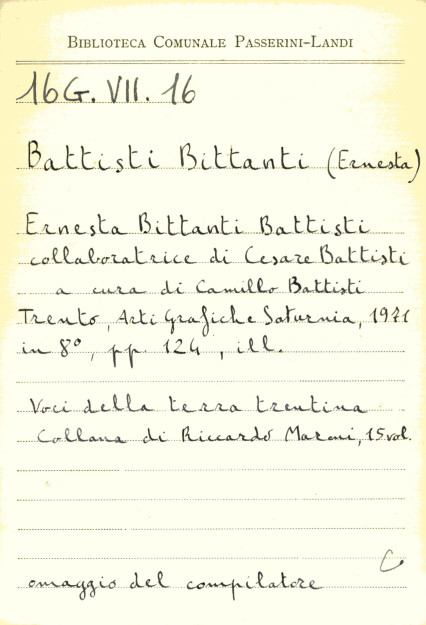 BIBLIOTECA COMUNALE PASSERINI-LANDI
16G. VII. 16
Battisti Bittanti (Ernesta)
Ernesta Bittanti Battisti
collaboratrice di Cesare Battisti
a cura di Camillo Battisti
Trento, Arti Grafiche Saturnia, 1971
in 8°, pp. 124, ill.
Voci della terra trentina
Collana di Riccardo Maroni, 15 vol.
C
omaggio del compilatore